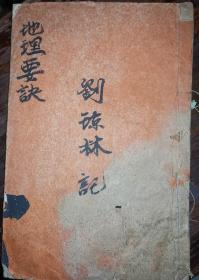 地理要訣
劉琼林記